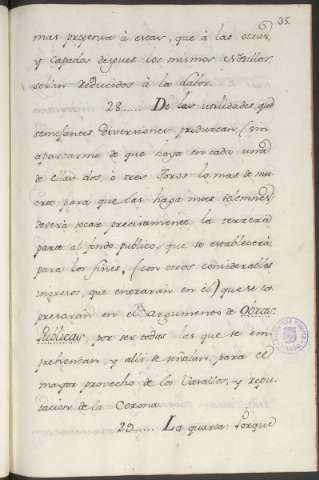 35
mas propensa à criar, que à las otras,
y Capados despues los mismos Novillos
serian Reducidos à la labor.
28..... De las utilidades, que
semejantes Diversiones produzcan, (sin
apartarme de que haya en cada una
de ellas dos, ò tres Toros lo mas de mu
erte, para que las haga mas solemnes
deverà tocar precisamente la tercera
parte al fondo publico, que se establecerà
para los fines, (con otros considerables
ingresos, que entraràn en èl) que se ex
presaràn en el argumento de Obras
Publicas, por ser todas las que se em
prehendan, y alli se señalan, para el
mayor provecho de los Vasallos, y repu
tacion de la Corona.
29..... La quarta: Porque